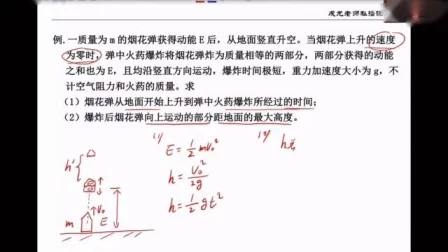 成龙老师私播课
例. 一质量为m的烟花弹获得动能E后，从地面竖直升空。当烟花弹上升的速度
为零时，弹中火药爆炸将烟花弹炸为质量相等的两部分，两部分获得的动能
之和也为E，且均沿竖直方向运动，爆炸时间极短，重力加速度大小为g，不
计空气阻力和火药的质量。求
（1）烟花弹从地面开始上升到弹中火药爆炸所经过的时间；
（2）爆炸后烟花弹向上运动的部分距地面的最大高度。
(1)
E = 1/2 mv₀²
h = v₀²/2g
h = 1/2 gt²
h'
m
v₀
E
h总